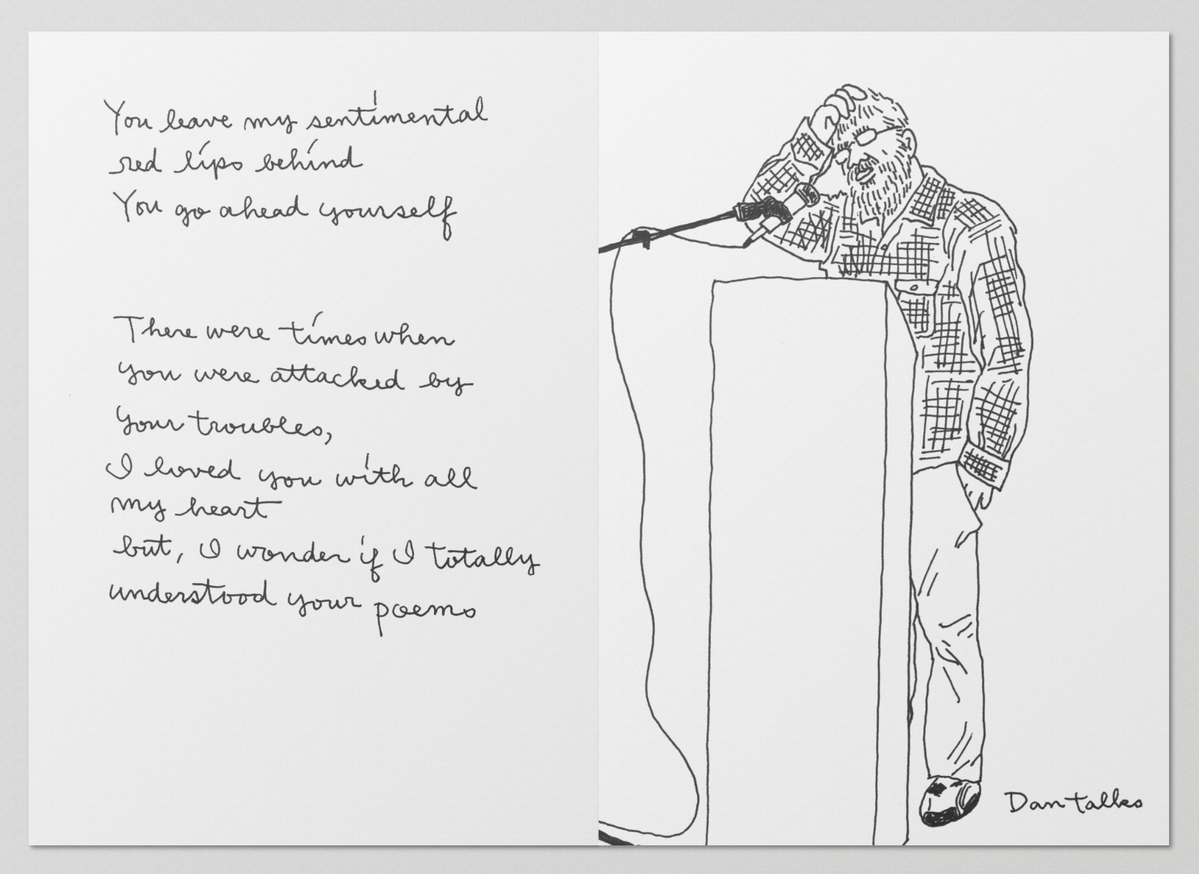 You leave my sentimental
red lips behind
You go ahead yourself
There were times when
you were attacked by
your troubles,
I loved you with all
my heart
but, I wonder if I totally
understood your poems
Dan talks